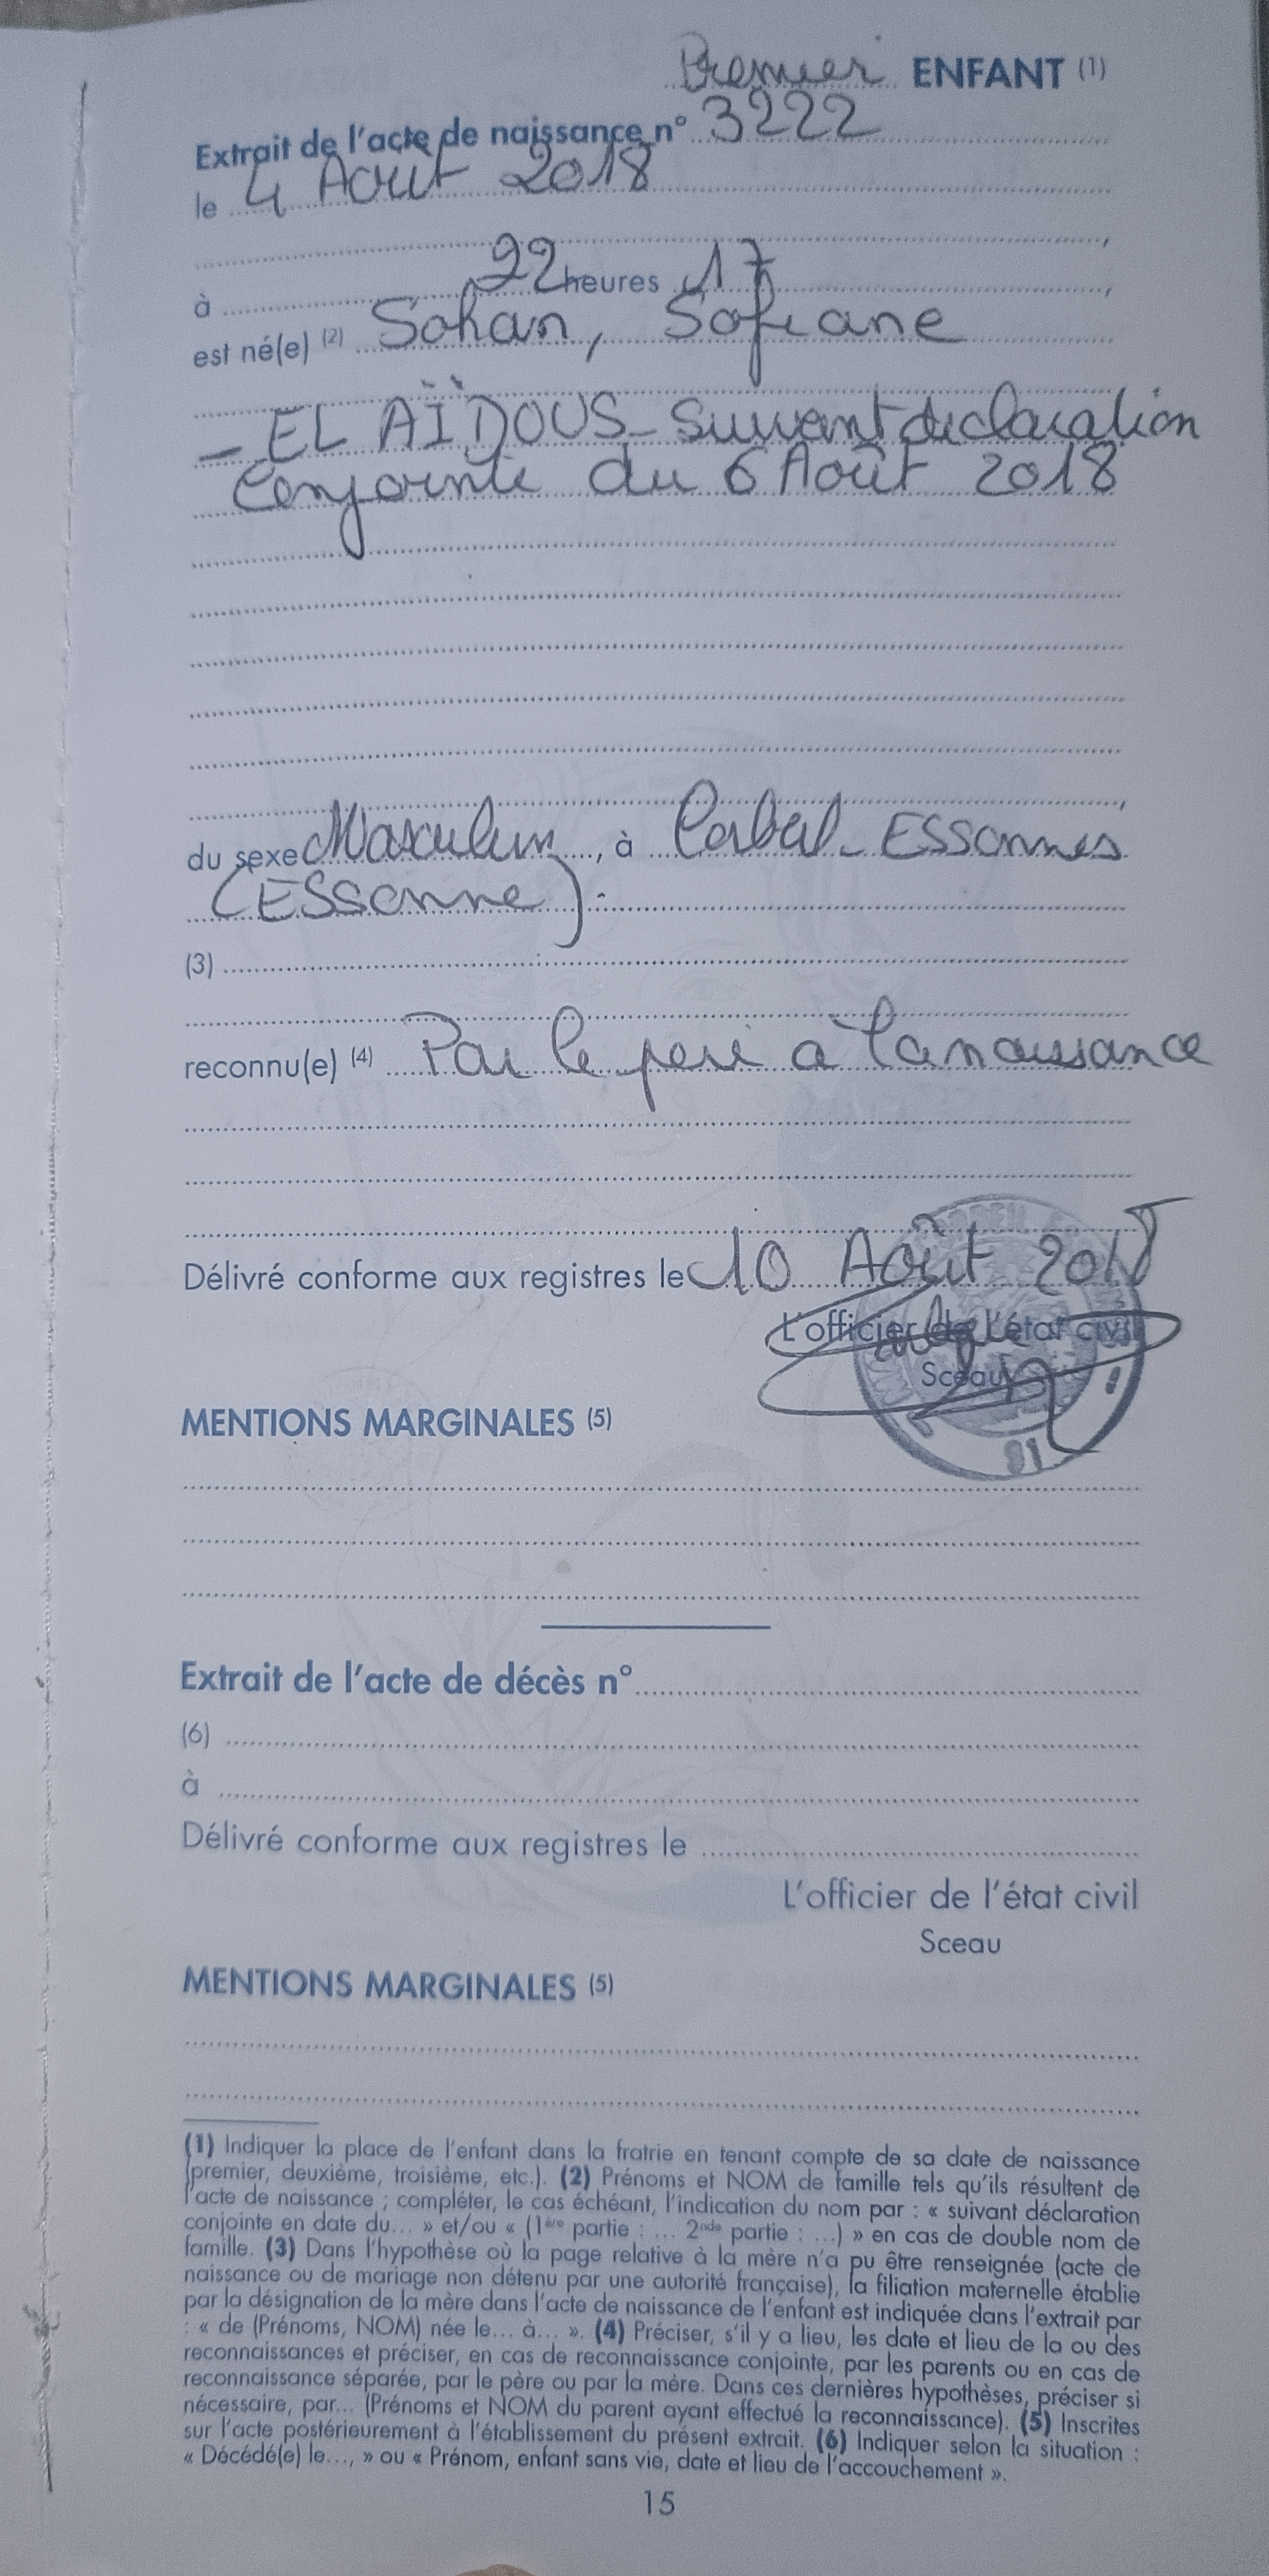 Premier ENFANT (1)
Extrait de l'acte de naissance n° 3222
le 4 Août 2018
à 22 heures 17
est né(e) (2) Sohan, Sofiane
- EL AÏDOUS - suivant declaration
Conjointe du 6 Août 2018
du sexe Masculin, à Corbeil-ESSonnes
(ESSonne).
(3)
reconnu(e) (4) Par le père à la naissance
Délivré conforme aux registres le 10 Août 2018
L'officier de l'état civil
Sceau
91
MENTIONS MARGINALES (5)
Extrait de l'acte de décès n°
(6)
à
Délivré conforme aux registres le
L'officier de l'état civil
Sceau
MENTIONS MARGINALES (5)
(1) Indiquer la place de l'enfant dans la fratrie en tenant compte de sa date de naissance
(premier, deuxième, troisième, etc.). (2) Prénoms et NOM de famille tels qu'ils résultent de
l'acte de naissance ; compléter, le cas échéant, l'indication du nom par : « suivant déclaration
conjointe en date du... » et/ou « (1ère partie : ... 2nde partie : ...) » en cas de double nom de
famille. (3) Dans l'hypothèse où la page relative à la mère n'a pu être renseignée (acte de
naissance ou de mariage non détenu par une autorité française), la filiation maternelle établie
par la désignation de la mère dans l'acte de naissance de l'enfant est indiquée dans l'extrait par
: « de (Prénoms, NOM) née le... à... ». (4) Préciser, s'il y a lieu, les date et lieu de la ou des
reconnaissances et préciser, en cas de reconnaissance conjointe, par les parents ou en cas de
reconnaissance séparée, par le père ou par la mère. Dans ces dernières hypothèses, préciser si
nécessaire, par... (Prénoms et NOM du parent ayant effectué la reconnaissance). (5) Inscrites
sur l'acte postérieurement à l'établissement du présent extrait. (6) Indiquer selon la situation :
« Décédé(e) le..., » ou « Prénom, enfant sans vie, date et lieu de l'accouchement ».
15